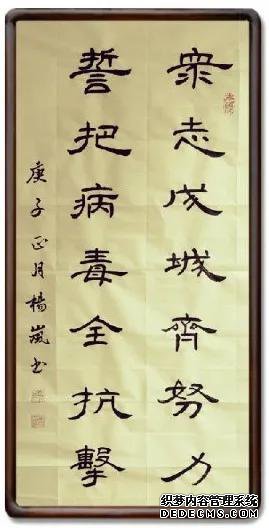 衆志成城齊努力
誓把病毒全抗擊
庚子正月楊嵐书
织梦内容管理系统
DEDECMS.COM